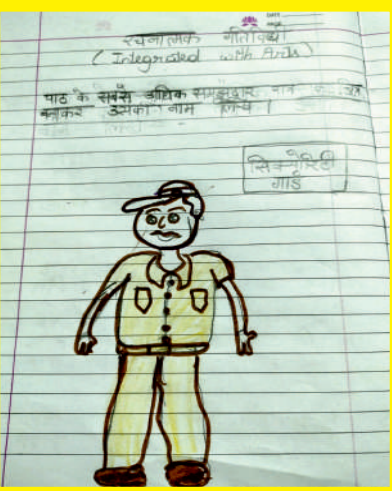 रचनात्मक गतिविधी
(Integrated with Arts)
पाठ के सबसे अधिक समझदार पात्र का चित्र
बनाकर उसका नाम लिखे ।
सिक्योरिटी
गार्ड